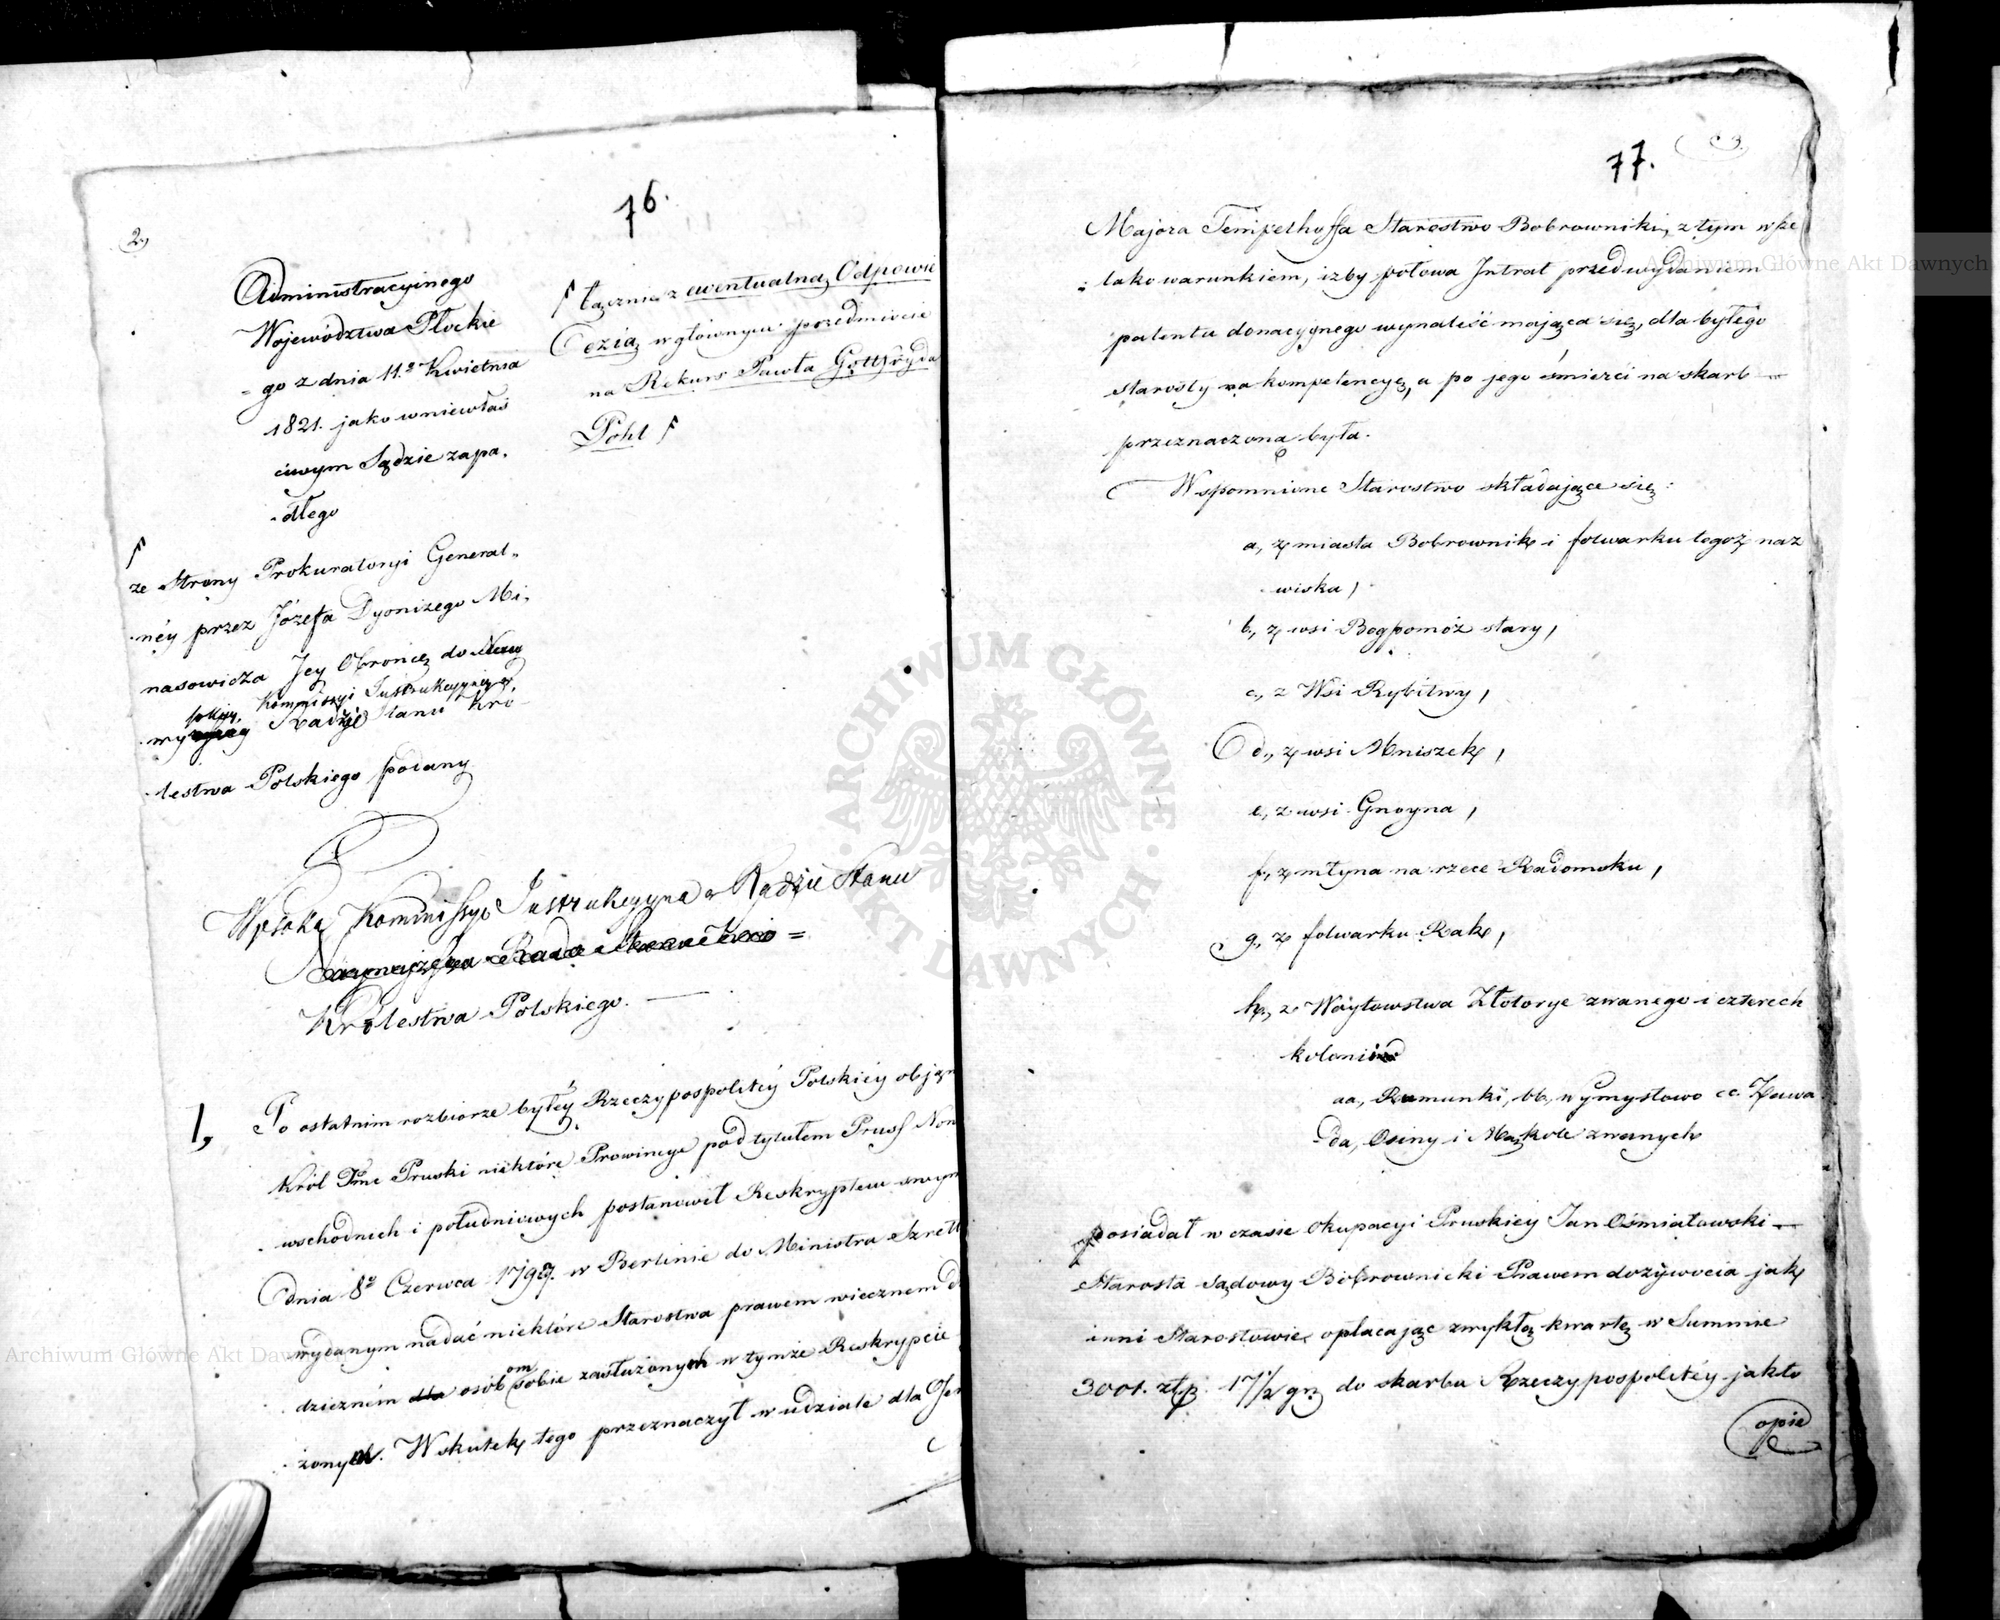 76.
2.
Administracyinego
Województwa Płockie
- go z dnia 11.° Kwietnia
1821. jako w niewłaś
ciwym Sądzie zapa.
- dłego
łącznie z ewentualną Odpowie
Cezią w głównym przedmiocie
na Rekurs Pawła Gottfryda
Pohl
ze Strony Prokuratoryi General-
-néy przez Józefa Dyonizego Mi-
nasowicza Jey Obrońcę do Nay
Kommissyi Instrukcyyney
Radzie Stanu Kró
-lestwa Polskiego podany
Wysoka Kommissyo Instrukcyyna w Radzie Stanu
Królestwa Polskiego.
1, Po ostatnim rozbiorze byłéy Rzeczypospolitéy Polskiéy objąw
Król Jmć Pruski niektóre Prowincye pod tytułem Pruss Now
- wschodnich i południowych postanowił Reskryptem swym
dnia 8° Czerwca 1797. w Berlinie do Ministra Szrett
wydanym nadać niektóre Starostwa prawem wiecznem d
dziczném dla osóbom sobie zasłużonych w tymże Reskrypcie
żonych. W skutek tego przeznaczył w udziale dla Jen
77.
Majora Tempelhoffa Starostwo Bobrowniki, z tym wsze
- lako warunkiem, iżby połowa Intrat przed wydaniem
patentu donacyynego wynaleść mająca się, dla byłego
starosty na kompetencyę, a po jego śmierci na skarb
przeznaczona była.
Wspomnione Starostwo składaiące się:
a, z miasta Bobrownik i folwarku tegoż naz
- wiska,
b, z wsi Bogpomóż stary,
c, z Wsi Rybitwy,
d, z wsi Mniszek,
e, z wsi Gnoyna,
f, z młyna na rzece Radomsku,
g, z folwarku Rak,
h, z Wóytowstwa Złotorye zwanego i czterech
kolonii
aa, Rumunki, bb, wymysłowo cc. Zawa
-da, Osiny i Mąkole zwanych
posiadał w czasie okupacyi Pruskiey Jan Ośmiałowski
Starosta sądowy Bobrownicki Prawem dożywocia jak
inni Starostowie opłacając zwykłą kwartę w Summie
3001. złp. 17 1/2 gr do skarbu Rzeczypospolitéy jak to
opie
ARCHIWUM GŁÓWNE AKT DAWNYCH
Archiwum Główne Akt Dawnych
Archiwum Główne Akt Dawnych